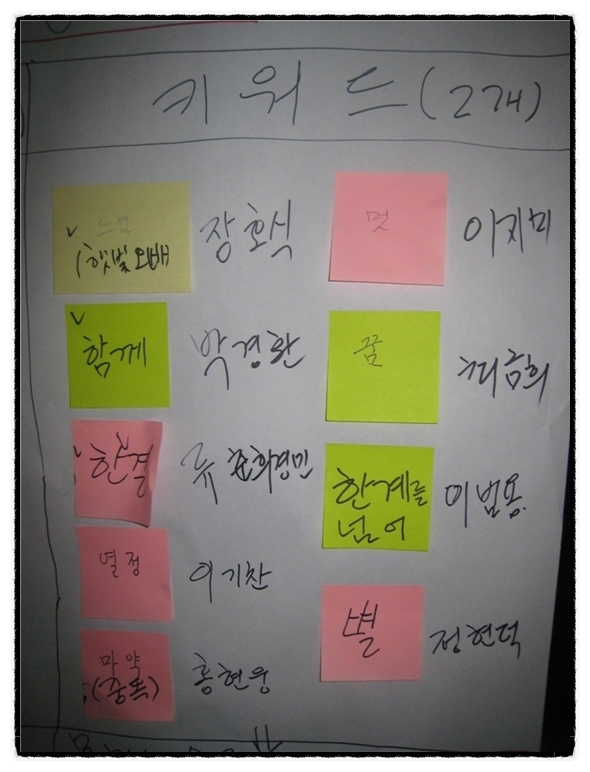 키워드(2개)
느낌
(햇빛오배
장호식
멋
이지미
함께
박경환
꿈
한결
류
한계를
넘어
이범용
열정
이기찬
별
정현덕
마약
(중독)
홍현웅